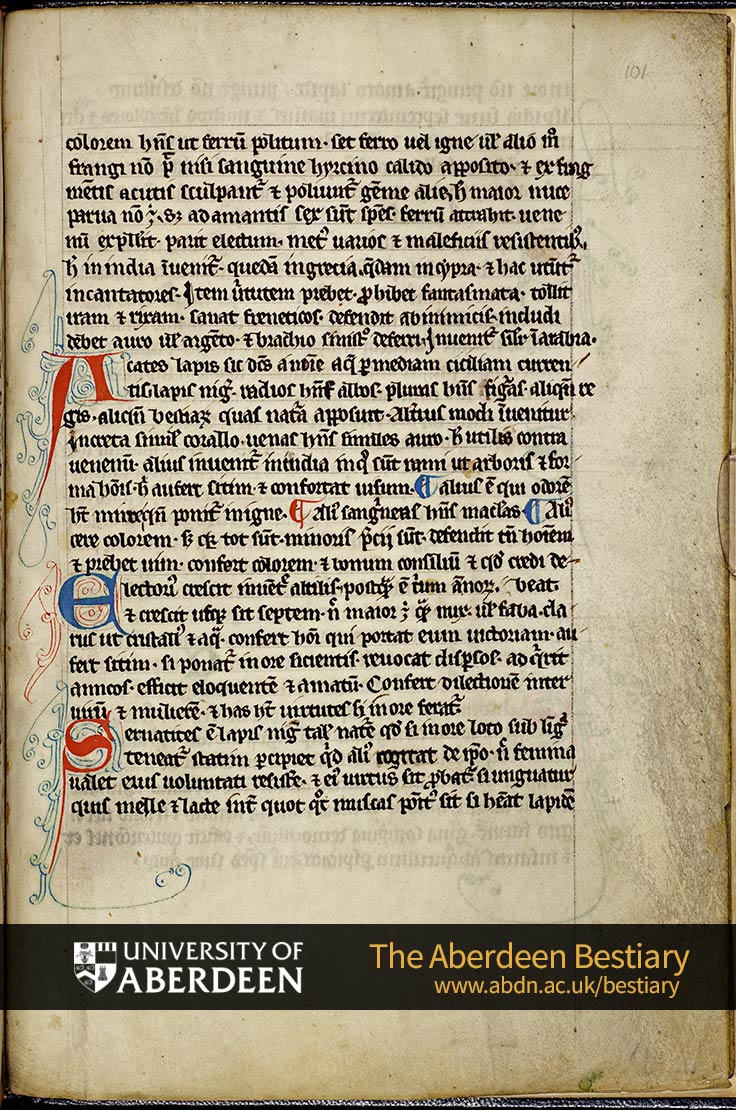 101
colorem hn̄s ut ferrū politum · set ferro uel igne ul̄ alio m̄
frangi nō p̄ nisi sanguine hyrcino calido apposito · ⁊ ex frag
mētis acutis sculpant᷑ ⁊ poliunt᷑ gēme alie, h̄ maior nuce
parua nō · s; adamantis sex sūt spēs · ferrū attrahit · uene
nū expłłit · parit electum · met᷑ uarios ⁊ maleficiis resistentib;,
h̄ in india īuenit᷑ · quedā in grecia, q̄dam in cypra · ⁊ hac utūt᷑
incantatores · Item ũtutem prebet · ꝓhibet fantasmata · tollit
iram ⁊ rixam · sanat freneticos · defendit ab inimicis · includi
debet auro ul̄ argēto · ⁊ brachio sinist᷑o deferri, Inuenit᷑ sil̄r ī arabia ·
Acates lapis sic dc̄s a noīe aq̄ ꝑ mediam ciciliam curren
tis, lapis nig᷑ · radios hn̄s albos · pluras hn̄s figãs · aliqn̄ re
gis · aliqn̄ bestiaꝝ quas nat̄a apposuit · Alterius modi īuenitur
in creta simil̄ corallo · uenas hn̄s similes auro · h̄ utilis contra
uenenū · alius inuenit᷑ in india in q̊ sūt rami ut arboris ⁊ for
ma hōis · h̄ aufert sitim · ⁊ confortat uisum · ¶ alius ē qui odorē
ht̄ mirre qn̄ ponit᷑ in igne · ¶ Ali᷒ sanguineas hn̄s maclas · ¶ Ali᷒
cere colorem · s; q̄ tot sūt · minoris p̄cii sūt · defendit tn̄ hoīem
⁊ prebet uim · confert colorem · ⁊ bonum consiliū ⁊ qd̄ credi de
Electori᷒ crescit in uēt᷑e altilis · postq̄ ē t̄um ānoꝝ · beat
⁊ crescit usq; sit septem · n̄ maior q̄ nux · ul̄ faba · cla
rus ut cristall᷒ ⁊ aq̄ · confert hōi qui portat eum uictoriam · au
fert sitim · si ponat᷑ in ore sicientis · reuocat dispersos · adq̄rit
amicos · efficit eloquentē ⁊ amatū · Confert dilectionē inter
uirū ⁊ mulierē · ⁊ has ht̄ uirtutes si in ore ferat᷑
Sernatites ē lapis nig᷑ tal̄ nat̄e qd̄ si in ore loto sub lig᷑
teneat᷑ statim ꝑcipiet q̇d ali᷒ cogitat de ip̄o · n̄ femina
ualet eius uoluntati resist᷑e · ⁊ ei᷒ uirtus sic ꝓbat᷑ si unguatur
quis melle ⁊ lacte sint quot q̊t muscas pōt᷑ sit si hēat lapidē
UNIVERSITY OF
ABERDEEN
The Aberdeen Bestiary
www.abdn.ac.uk/bestiary